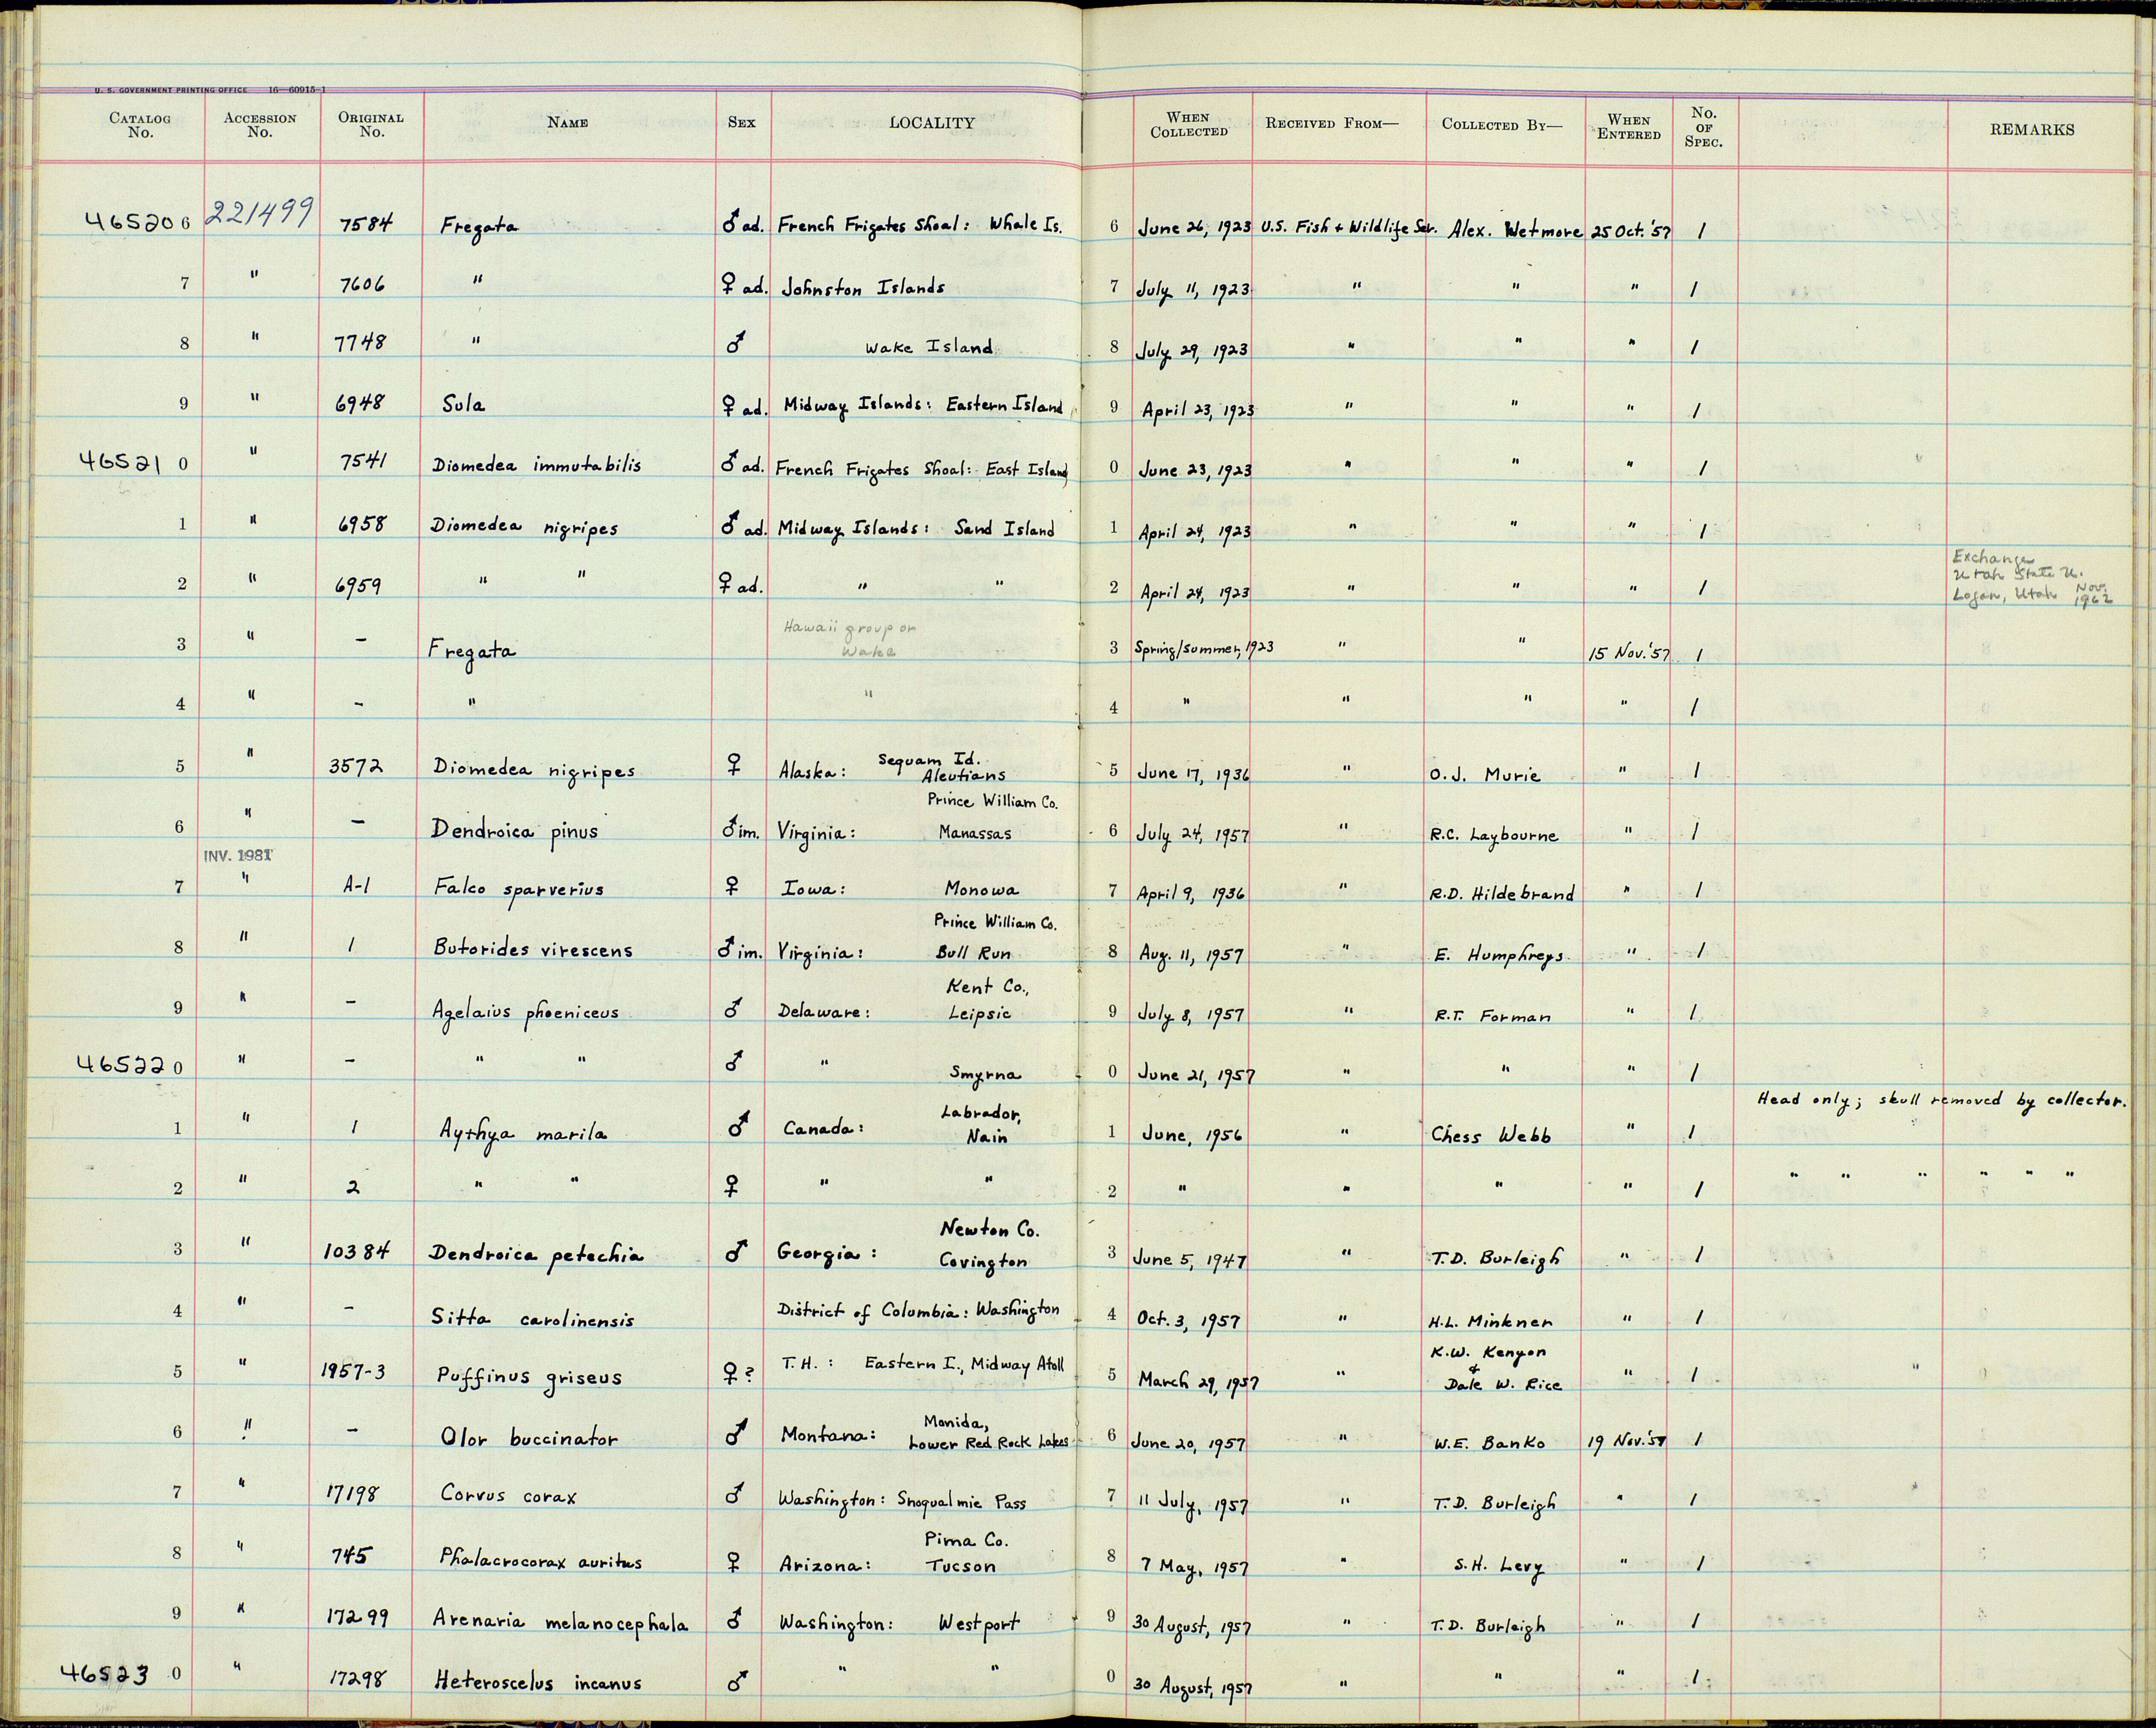 U. S. GOVERNMENT PRINTING OFFICE 16—60915-1
CATALOG No. ACCESSION No. ORIGINAL No. NAME SEX LOCALITY WHEN COLLECTED RECEIVED FROM— COLLECTED BY— WHEN ENTERED No. OF SPEC. REMARKS
465206 221499 7584 Fregata ♂ ad. French Frigates Shoal: Whale Is. 6 June 26, 1923 U.S. Fish + Wildlife Ser. Alex. Wetmore 25 Oct. '57 1
7 " 7606 " ♀ ad. Johnston Islands 7 July 11, 1923 " " " 1
8 " 7748 " ♂ Wake Island 8 July 29, 1923 " " " 1
9 " 6948 Sula ♀ ad. Midway Islands: Eastern Island 9 April 23, 1923 " " " 1
465210 " 7541 Diomedea immutabilis ♂ ad. French Frigates Shoal: East Island 0 June 23, 1923 " " " 1
1 " 6958 Diomedea nigripes ♂ ad. Midway Islands: Sand Island 1 April 24, 1923 " " " 1
Exchange
Utah State U.
Logan, Utah Nov. 1962
2 " 6959 " " ♀ ad. " " 2 April 24, 1923 " " " 1
Hawaii group or
Wake
3 " – Fregata 3 Spring/summer, 1923 " " 15 Nov. '57 1
4 " – " " 4 " " " " 1
Seguam Id.
5 " 3572 Diomedea nigripes ♀ Alaska: Aleutians 5 June 17, 1936 " O.J. Murie " 1
Prince William Co.
6 " – Dendroica pinus ♂ im. Virginia: Manassas 6 July 24, 1957 " R.C. Laybourne " 1
INV. 1981
7 " A-1 Falco sparverius ♀ Iowa: Monowa 7 April 9, 1936 " R.D. Hildebrand " 1
Prince William Co.
8 " 1 Butorides virescens ♂ im. Virginia: Bull Run 8 Aug. 11, 1957 " E. Humphreys " 1
Kent Co.,
9 " – Agelaius phoeniceus ♂ Delaware: Leipsic 9 July 8, 1957 " R.T. Forman " 1
465220 " – " " ♂ " Smyrna 0 June 21, 1957 " " " 1
Labrador,
Head only; skull removed by collector.
1 " 1 Aythya marila ♂ Canada: Nain 1 June, 1956 " Chess Webb " 1
2 " 2 " " ♀ " " 2 " " " " 1 " " " " " "
Newton Co.
3 " 10384 Dendroica petechia ♂ Georgia: Covington 3 June 5, 1947 " T.D. Burleigh " 1
4 " – Sitta carolinensis District of Columbia: Washington 4 Oct. 3, 1957 " H.L. Minkner " 1
K.W. Kenyon
&
5 " 1957-3 Puffinus griseus ♀? T.H.: Eastern I., Midway Atoll 5 March 29, 1957 " Dale W. Rice " 1
Monida,
6 " – Olor buccinator ♂ Montana: Lower Red Rock Lakes 6 June 20, 1957 " W.E. Banko 19 Nov. '57 1
7 " 17198 Corvus corax ♂ Washington: Snoqualmie Pass 7 11 July, 1957 " T.D. Burleigh " 1
Pima Co.
8 " 745 Phalacrocorax auritus ♀ Arizona: Tucson 8 7 May, 1957 " S.H. Levy " 1
9 " 17299 Arenaria melanocephala ♂ Washington: Westport 9 30 August, 1957 " T.D. Burleigh " 1
465230 " 17298 Heteroscelus incanus ♂ " " 0 30 August, 1957 " " " 1